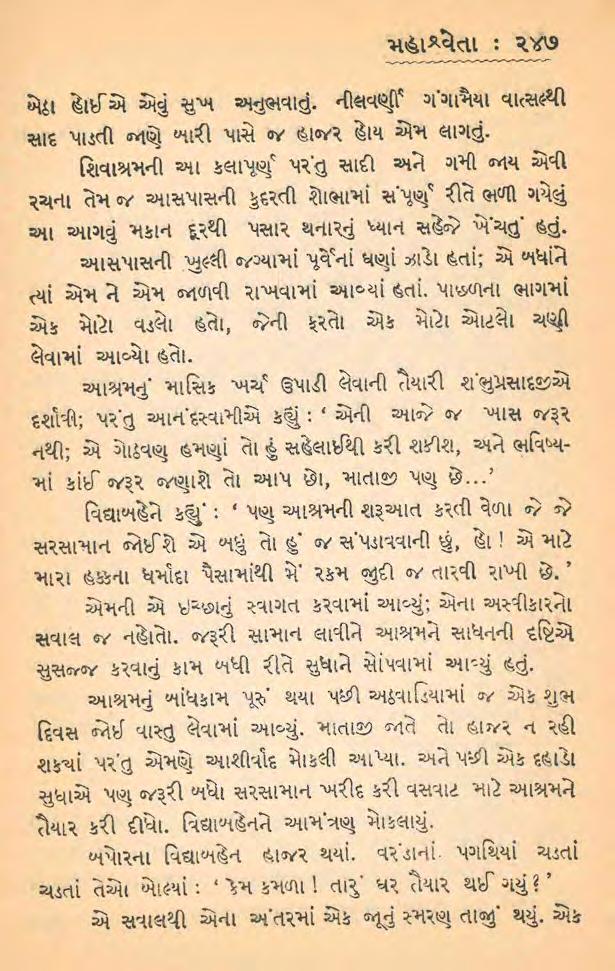 મહાશ્વેતા : ૨૪૭
બેઠા હોઈએ એવું સુખ અનુભવાતું. નીલવર્ણી ગંગામૈયા વાત્સલ્યથી
સાદ પાડતી જાણે બારી પાસે જ હાજર હોય એમ લાગતું.
શિવાશ્રમની આ કલાપૂર્ણ પરંતુ સાદી અને ગમી જાય એવી
રચના તેમ જ આસપાસની કુદરતી શોભામાં સંપૂર્ણ રીતે ભળી ગયેલું
આ આગવું મકાન દૂરથી પસાર થનારનું ધ્યાન સહેજે ખેંચતું હતું.
આસપાસની ખુલ્લી જગ્યામાં પૂર્વેનાં ઘણાં ઝાડો હતાં; એ બધાંને
ત્યાં એમ ને એમ જાળવી રાખવામાં આવ્યાં હતાં. પાછળના ભાગમાં
એક મોટો વડલો હતો, જેની ફરતો એક મોટો ઓટલો ચણી
લેવામાં આવ્યો હતો.
આશ્રમનું માસિક ખર્ચ ઉપાડી લેવાની તૈયારી શંભુપ્રસાદજીએ
દર્શાવી; પરંતુ આનંદસ્વામીએ કહ્યું : ‘ એની આજે જ ખાસ જરૂર
નથી; એ ગોઠવણ હમણાં તો હું સહેલાઈથી કરી શકીશ, અને ભવિષ્ય-
માં કાંઈ જરૂર જણાશે તો આપ છો, માતાજી પણ છે...’
વિદ્યાબહેને કહ્યું : ‘ પણ આશ્રમની શરૂઆત કરતી વેળા જે જે
સરસામાન જોઈશે એ બધું તો હું જ સંપડાવવાની છું, હો ! એ માટે
મારા હક્કના ધર્માદા પૈસામાંથી મેં રકમ જુદી જ તારવી રાખી છે. ’
એમની એ ઇચ્છાનું સ્વાગત કરવામાં આવ્યું; એના અસ્વીકારનો
સવાલ જ નહોતો. જરૂરી સામાન લાવીને આશ્રમને સાધનની દૃષ્ટિએ
સુસજ્જ કરવાનું કામ બધી રીતે સુધાને સોંપવામાં આવ્યું હતું.
આશ્રમનું બાંધકામ પૂરું થયા પછી અઠવાડિયામાં જ એક શુભ
દિવસ જોઈ વાસ્તુ લેવામાં આવ્યું. માતાજી જાતે તો હાજર ન રહી
શક્યાં પરંતુ એમણે આશીર્વાદ મોકલી આપ્યા. અને પછી એક દહાડો
સુધાએ પણ જરૂરી બધો સરસામાન ખરીદ કરી વસવાટ માટે આશ્રમને
તૈયાર કરી દીધો. વિદ્યાબહેનને આમંત્રણ મોકલાયું.
બપોરના વિદ્યાબહેન હાજર થયાં. વરંડાનાં પગથિયાં ચડતાં
ચડતાં તેઓ બોલ્યાં : ‘ કેમ કમળા ! તારું ઘર તૈયાર થઈ ગયું ? ’
એ સવાલથી એના અંતરમાં એક જૂનું સ્મરણ તાજું થયું. એક